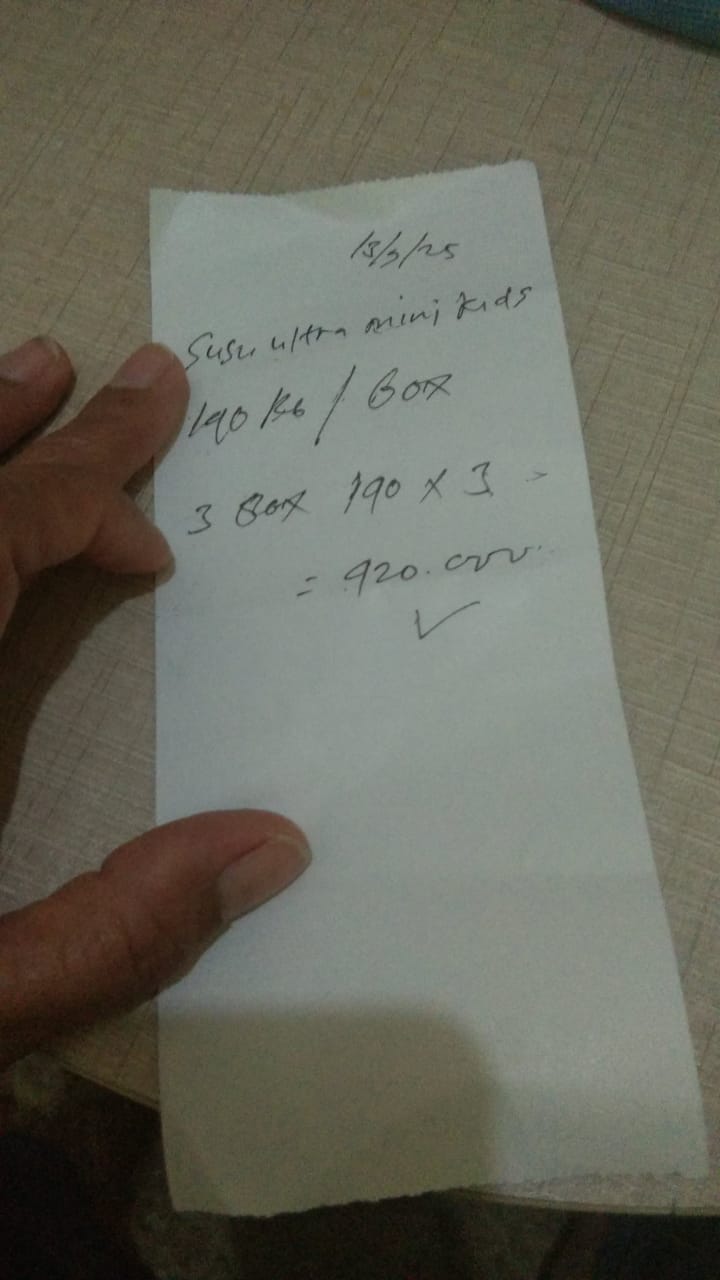 13/3/25
Susu ultra mini kids
140 Rb / Box
3 Box 140 x 3 =
= 420.000